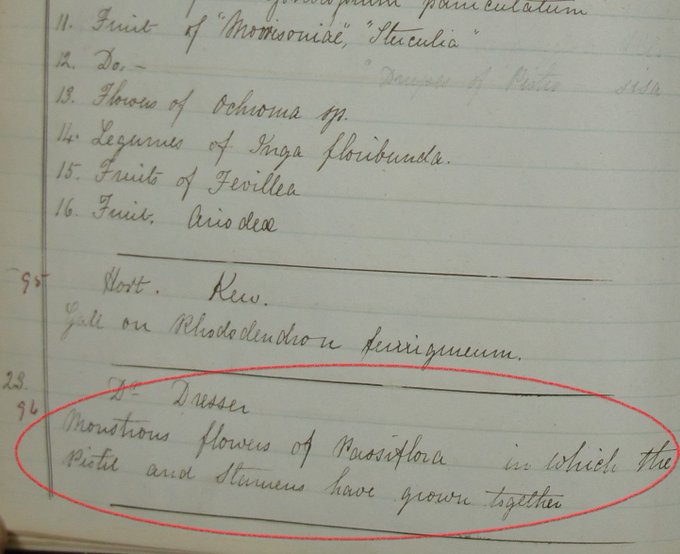 paniculatum
11. Fruit of "Moorisoniae", "Stuculia"
12. Do. -
"Drupes of
13. Flowers of Ochroma sp.
14. Legumes of Inga floribunda.
15. Fruits of Fevillea
16. Fruit.
95
Hort. Kew.
Gall on Rhododendron
23.
96
Dr Dresser
Monstrous flowers of Passiflora in which the
Pistil and Stamens have grown together